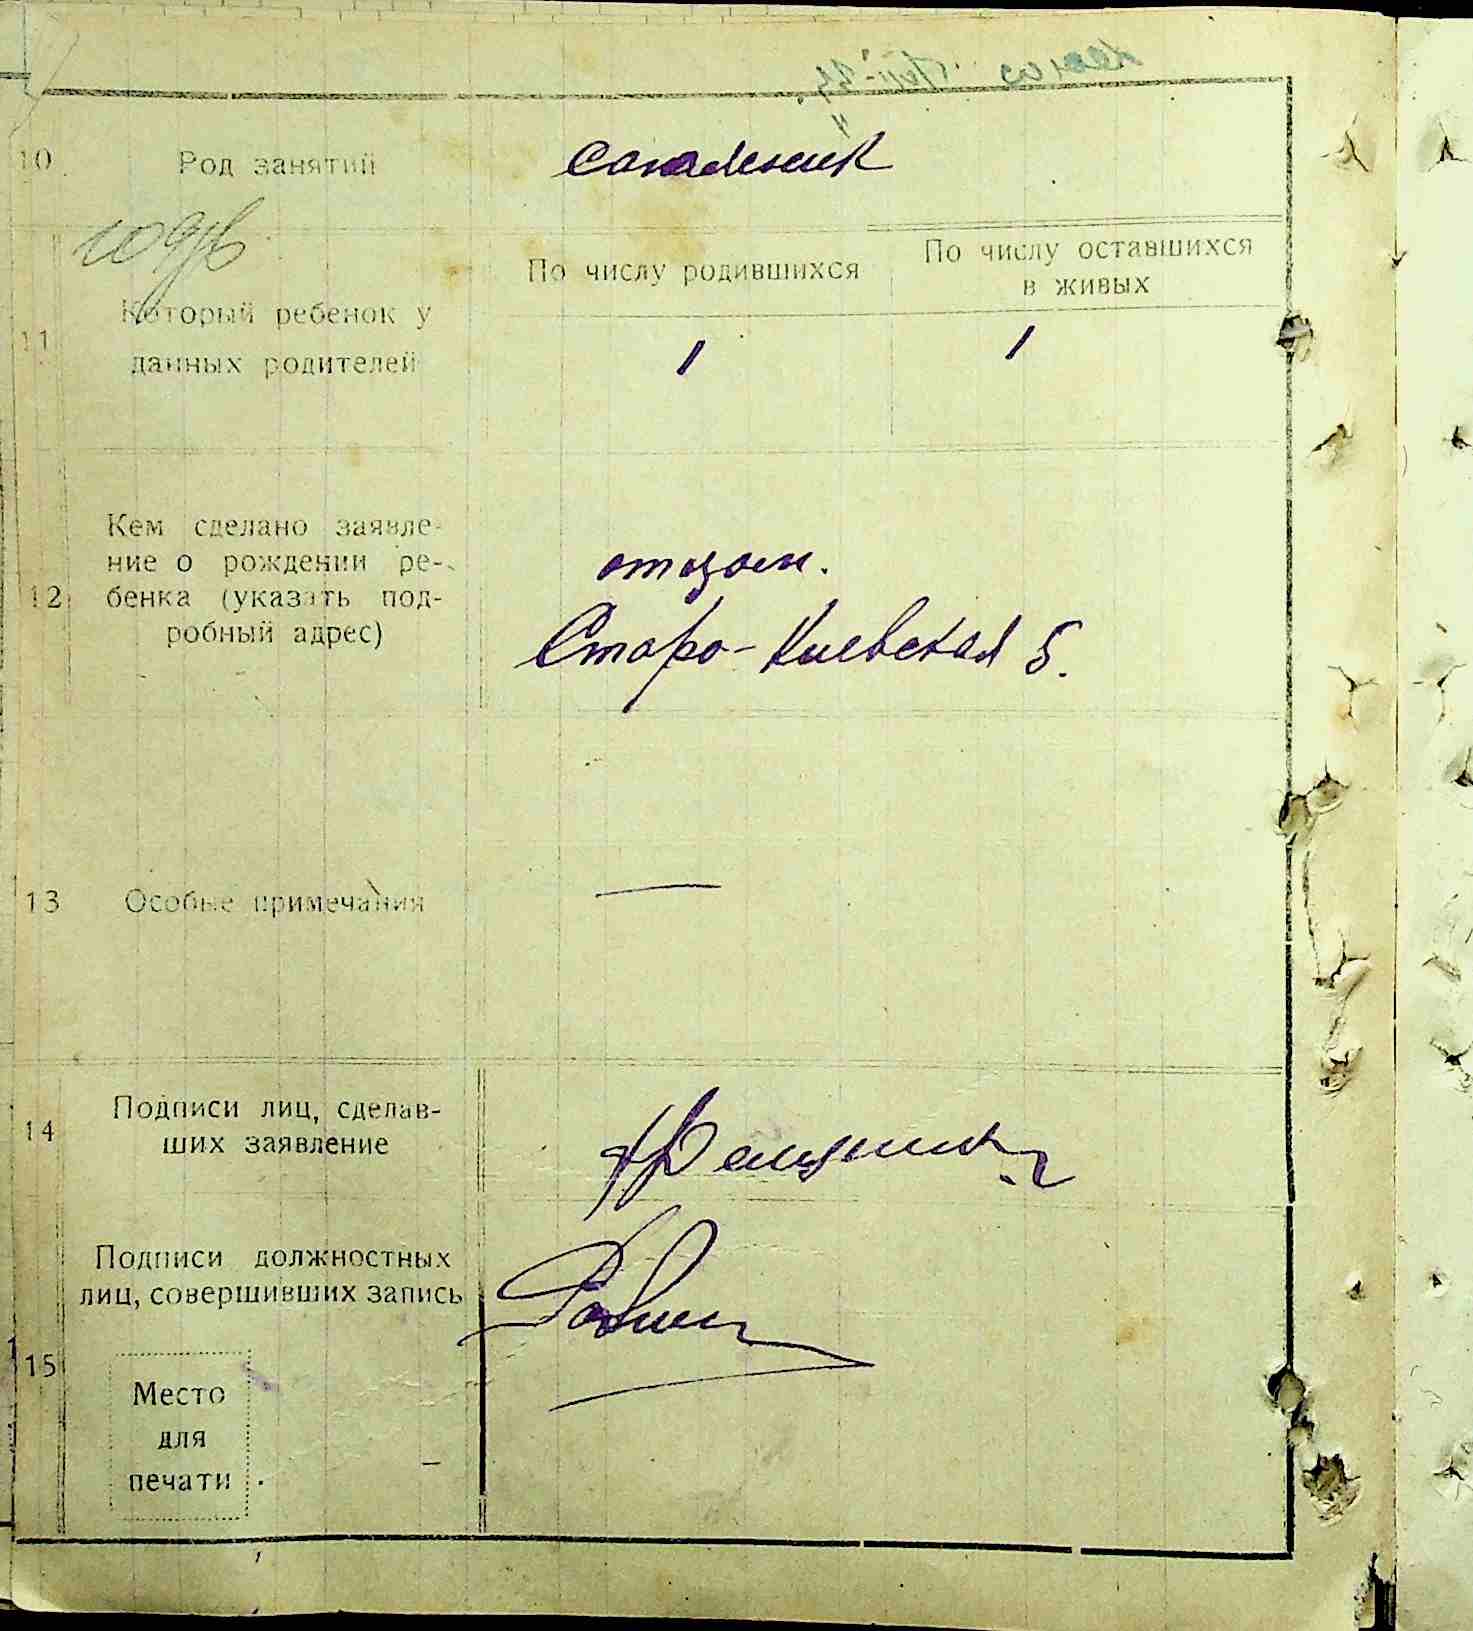 10
Род занятий
сапожник
По числу родившихся
По числу оставшихся
в живых
11
Который ребенок у
данных родителей
1
1
12
Кем сделано заявле-
ние о рождении ре-
бенка (указать под-
робный адрес)
отцом.
Старо-Киевская 5.
13
Особые примечания
—
14
Подписи лиц, сделав-
ших заявление
Подписи должностных
лиц, совершивших запись
15
Место
для
печати